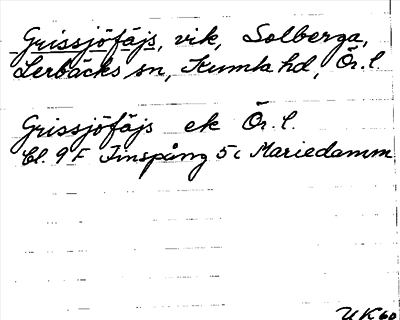 Grissjöfäjs, vik, Solberga,
Lerbäcks sn, Kumla hd, Ör. l.
Grissjöfäjs ek Ör. l.
Bl. 9 F Finspång 5 c Mariedamm
UK60